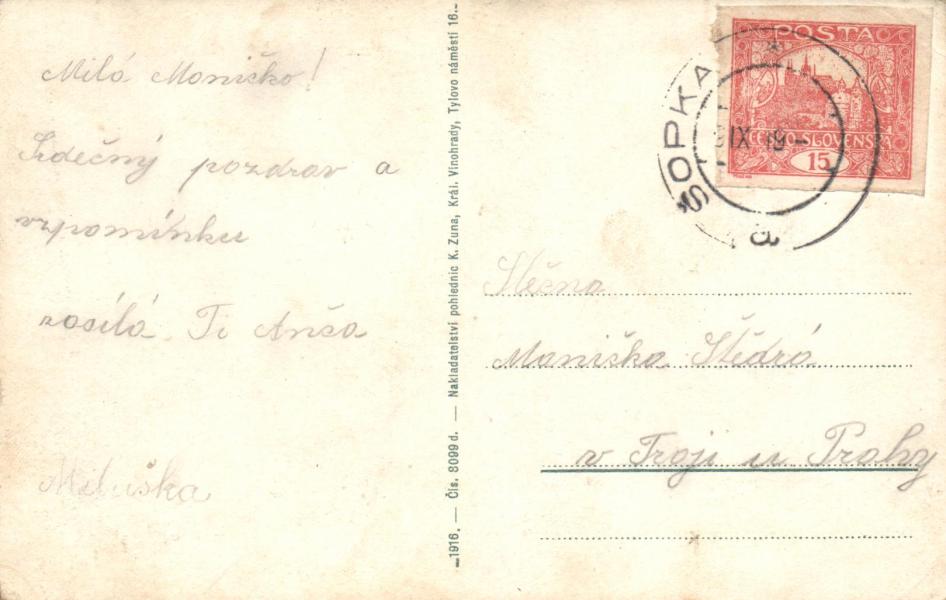 Milá Maničko!
Srdečný pozdrav a
vzpomínku
zasílá Ti Anča
Miluška
1916. — Čís. 8099 d. — Nakladatelství pohlednic K. Zuna, Král. Vinohrady, Tylovo náměstí 16.
POSTA
ČESKO-SLOVENSKÁ
15
ŠOPKA
IX 19
a
Slečna
Maniška Štědrá
v Troji u Prahy